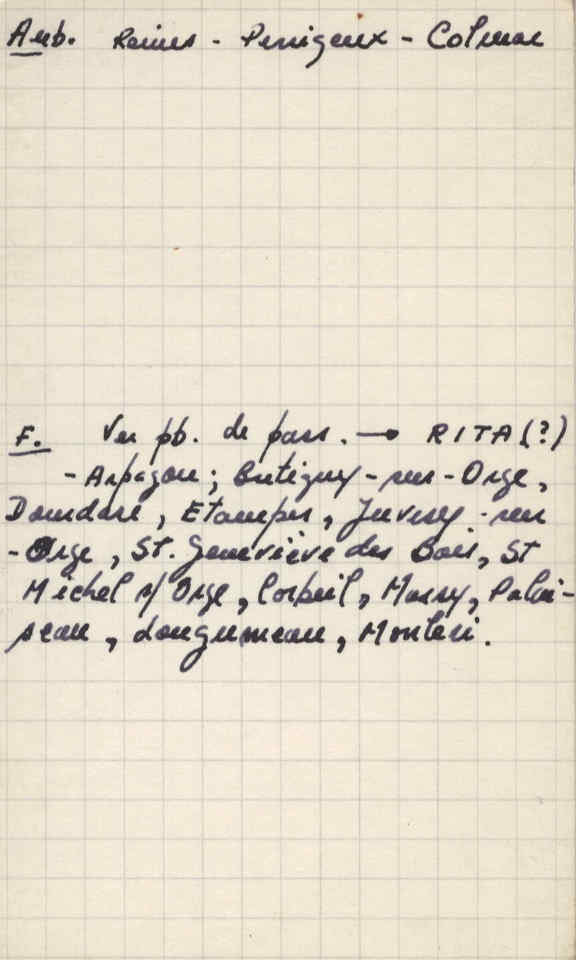 Aub. Reims - Perrigeux - Colmar
F. Vu pb. de pass. → RITA (?)
- Arpagon ; Brétigny - sur - Orge,
Dourdan, Etampes, Juvisy - sur
- Orge, St. Geneviève des Bois, St
Michel s/ Orge, Corbeil, Massy, Palai-
seau, Longjumeau, Montléri.